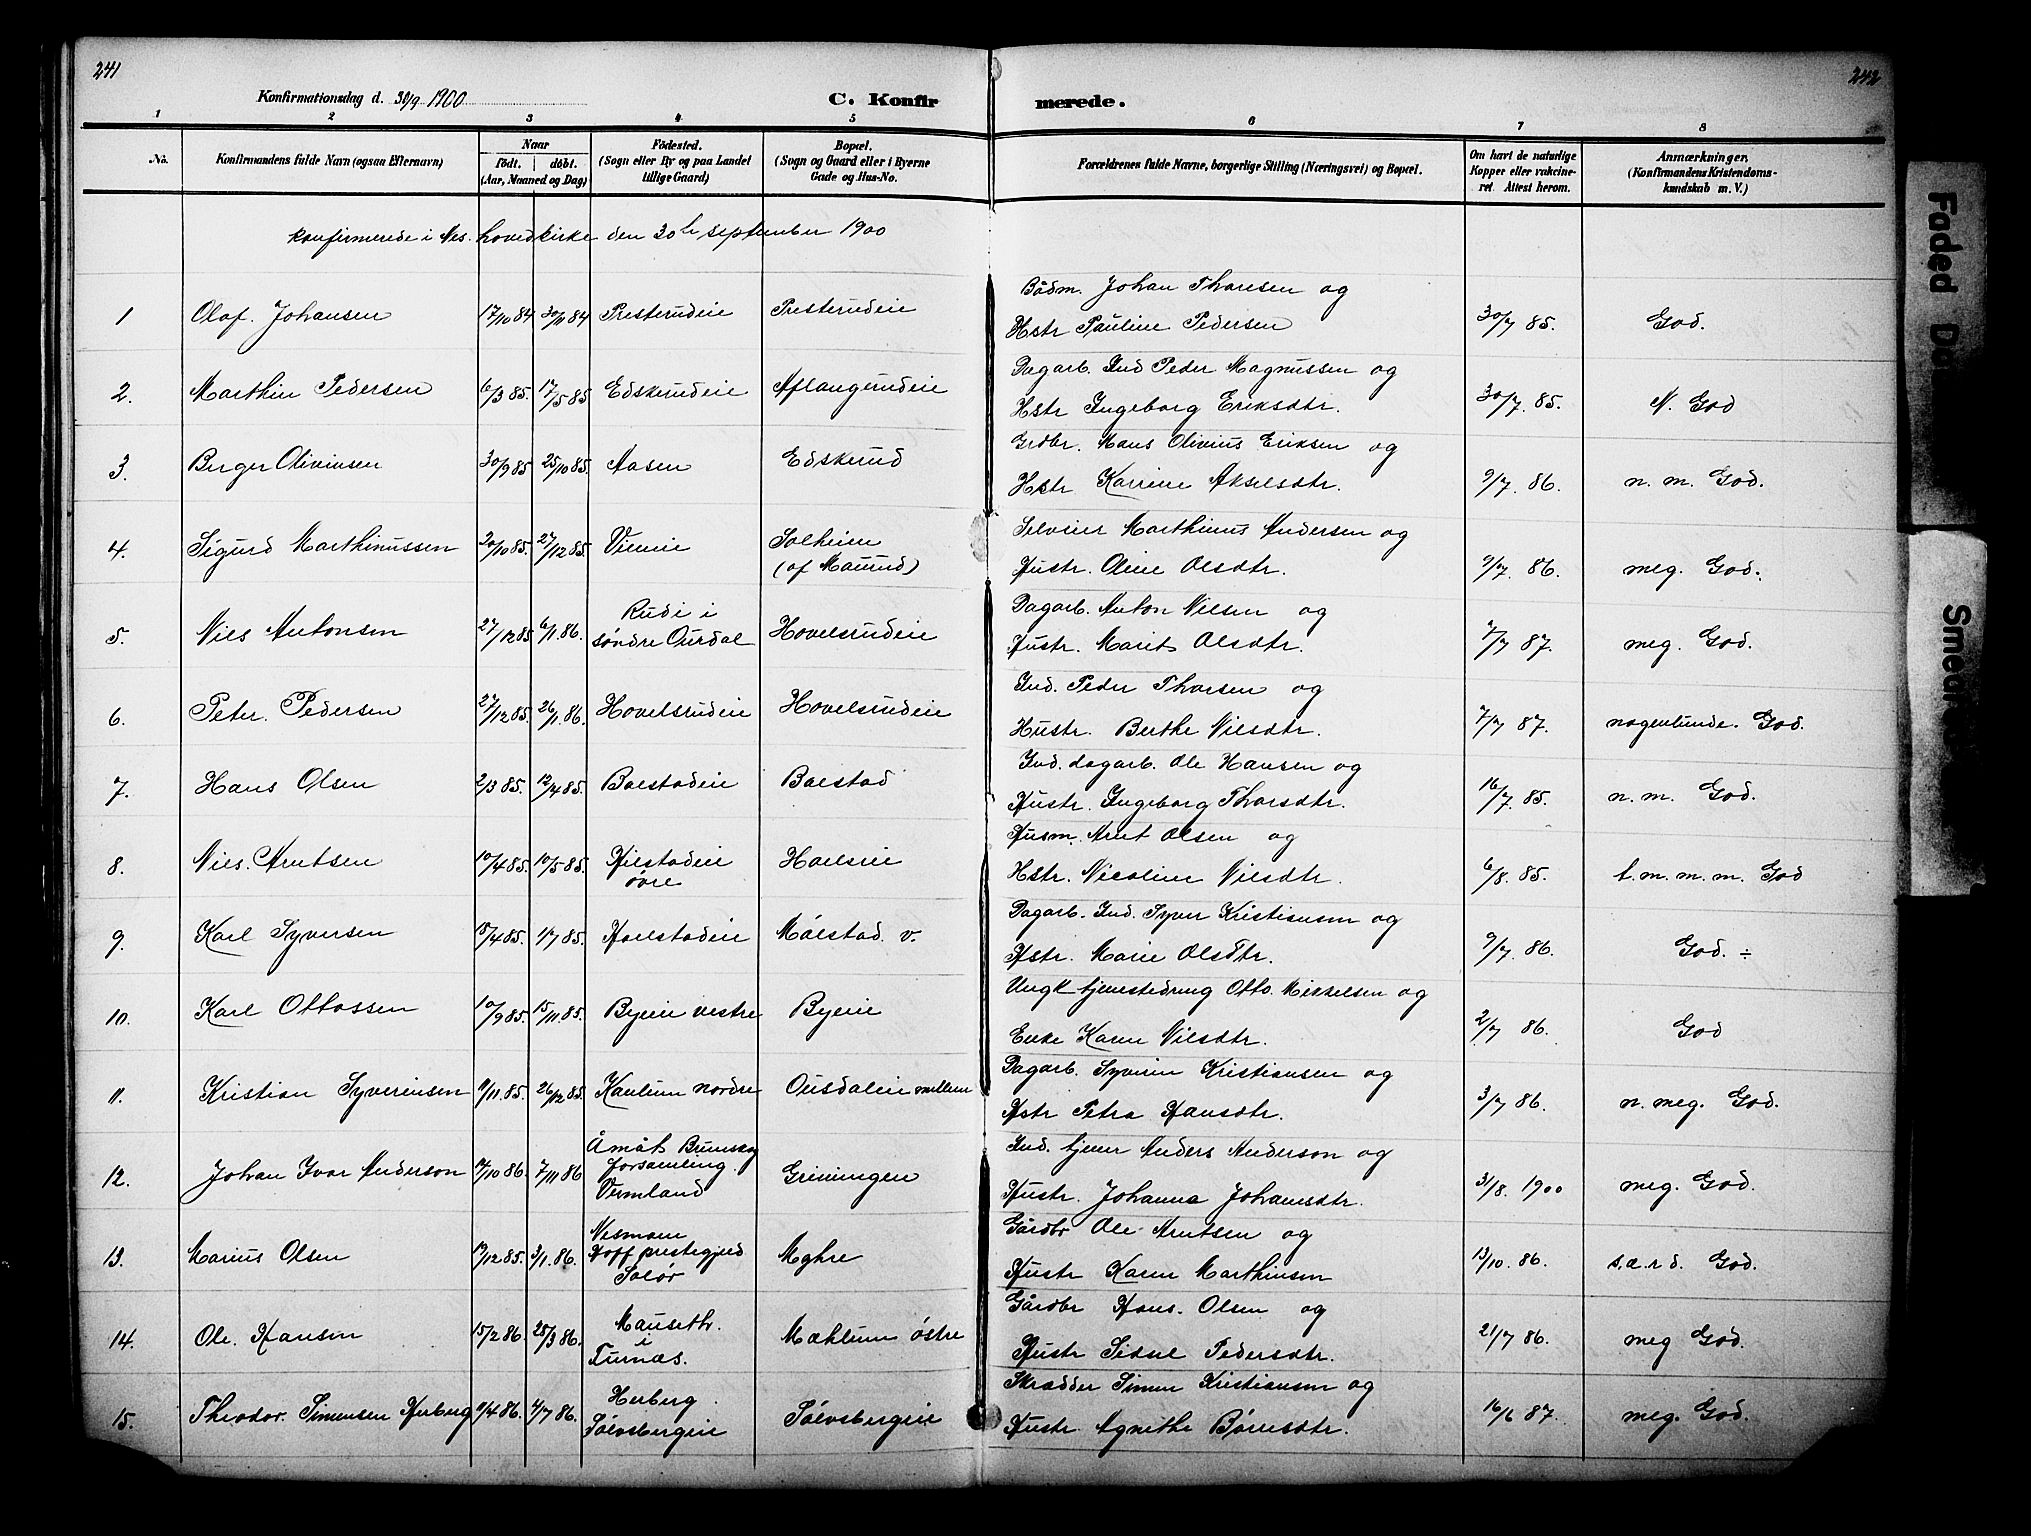 241
242
Konfirmationsdag d. 30/9 1900
C. Konfir
merede.
1 2 3 4 5 6 7 8
No.
Konfirmandens fulde Navn (ogsaa Efternavn)
Naar
födt. döbt.
(Aar, Maaned og Dag)
Födested.
(Sogn eller By og paa Landet
tillige Gaard)
Bopæl.
(Sogn og Gaard eller i Byerne
Gade og Hus-No.
Forældrenes fulde Navne, borgerlige Stilling (Næringsvei) og Bopæl.
Om havt de naturlige
Kopper eller vakcine-
ret. Attest herom.
Anmærkninger.
(Konfirmandens Kristendoms-
kundskab m. V.)
Konfirmerede i Nes hovedkirke den 30te september 1900
1 Olaf. Johansen 17/10 84 30/11 84 Presterudeie Presterudeie
Bådm. Johan Thoresen og
Hstr Pauline Pedersen 30/7 85. God.
2. Marthin Pedersen 6/3 85. 17/5 85 Edskerudeie Aflangerudeie
Dagarb. Ind Peder Magnussen og
Hstr Ingeborg Eriksdtr. 30/7. 85. N. God
3. Berger Olivinsen 30/9 85 25/10 85. Aasen Edskerud
Grdbr. Hans Olivius Eriksen og
Hstr Karrine Akselsdtr. 9/7. 86. n. m. God.
4. Sigurd Marthinussen 20/10 85. 27/12 85. Solheim
(af Maurud)
Selveier Marthinus Andersen og
Hustr. Oline Olsdtr. 9/7. 86. meg. God.
5. Nils Antonsen 27/12 85 6/1 86. Rudi i
søndre Ourdal Hovelsrudeie
Dagarb. Anton Nilsen og
Hustr. Marit Olsdtr. 7/7 87. meg. God.
6. Peter. Pedersen 27/12 85. 26/1. 86. Hovelsrudeie Hovelsrudeie
Ind. Peder Thorsen og
Hustr. Berthe Nilsdtr. 7/7 87. nogenlunde. God.
7. Hans Olsen 2/3 85. 12/4 85. Balestadeie Balestad
Ind. dagarb. Ole Hansen og
Hustr. Ingeborg Thorsdtr. 16/7. 85. n. m. God.
8. Nils. Arntsen 10/4 85. 10/5 85. Hjelstadeie
øvre Hoelseie
Husm. Arnt Olsen og
Hstr. Nicoline Nilsdtr. 6/8. 85. t. m. m. m. God
9. Karl Syversen 15/4 85. 1/7 85. Hoelstadeie Mælstad. v.
Dagarb. Ind. Syver Kristiansen og
Hstr. Marie Olsdtr. 9/7. 86. God. ÷
10. Karl Ottossen 10/9 85. 15/11. 85. Byeie vestre Byeie
Ungk tjenestedreng Otto. Mikkelsen og
Enke Karen Nilsdtr. 2/7 86. God
11. Kristian Syverinsen 11/11. 85. 26/12 85. Kaulum nordre Ousdalen mellem
Dagarb. Syverin Kristiansen og
Hstr Petra Hansdtr. 3/7 86. n. meg. God.
12. Johan Ivar Anderson 86. 7/11 86 Åmåt Brunskog
forsamling.
Vermland Greningen
Ind. tjener Anders Anderson og
Hustr. Johanna Johansdtr. 31/8. 1900 meg. God.
13. Marius Olsen 13/12 85. 3/1. 86.
Hoff prestegjeld
Solør Mghre
Gårdbr Ole Arntsen og
Hustr Karen Marthinsen 13/10. 86. s. a. r d. God.
14. Ole. Hansen 15/2 86. 28/3 86. Mauseth.
i
Furnæs. Mæhlum østre
Gårdbr Hans. Olsen og
Hustr Sidsel Pedersdtr. 21/7 86. meg God.
15. Theodor. Simensen Herberg 11/4 86. 4/7 86. Herberg.
Sølvsbergeie Sølvsbergeie
Skrædder Simen Kristiansen og
Hustr. Agnethe Børresdtr. 16/6 87. meg. God.
Faded